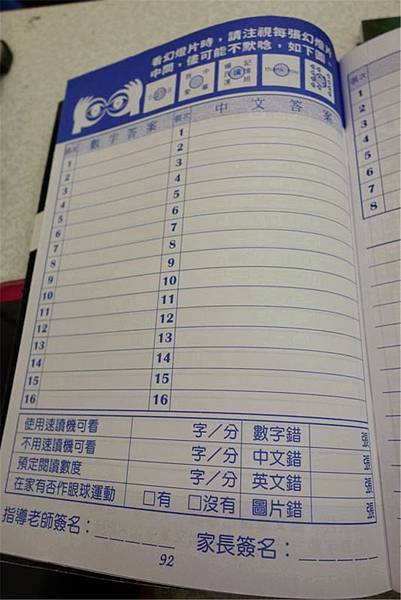 看幻燈片時，請注視每張幻燈片
中間，儘可能不默唸，如下圖。
張次 數字答案 張次 中文答案
1 1
2 2
3 3
4 4
5 5
6 6
7 7
8 8
9 9
10 10
11 11
12 12
13 13
14 14
15 15
16 16
使用速讀機可看 字／分 數字錯 張
不用速讀機可看 字／分 中文錯 張
預定閱讀數度 字／分 英文錯 張
在家有否作眼球運動 □有 □沒有 圖片錯 張
指導老師簽名： 家長簽名：
92
張次
1
2
3
4
5
6
7
8